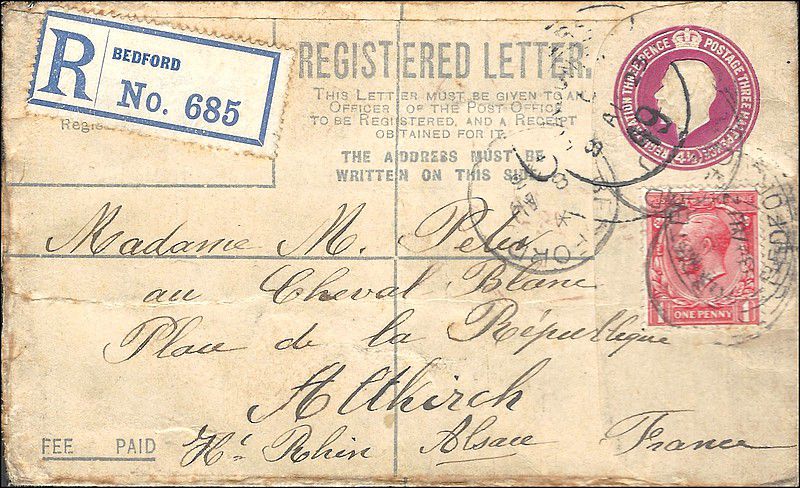 R
BEDFORD
No. 685
REGISTERED LETTER.
THIS LETTER MUST BE GIVEN TO AN
OFFICER OF THE POST OFFICE
TO BE REGISTERED, AND A RECEIPT
OBTAINED FOR IT.
THE ADDRESS MUST BE
WRITTEN ON THIS SIDE
POSTAGE THREE HALFPENCE
THREEPENCE
4½D
Madame M.
au Cheval Blanc
Place de la République
Altkirch
Ht Rhin Alsace France
1 ONE PENNY 1
FEE PAID